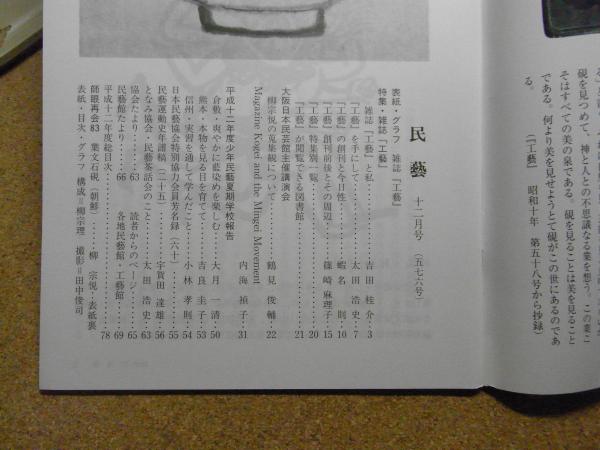 る」と
硯を見つめて、神と人との不思議なる業を想う。この業こ
そはすべての美の泉である。硯を見ることは美を見ること
である。何より美を見せようとて硯がこの世にあるのであ
る。
(『工藝』 昭和十年 第五十八号から抄録)
民藝 十二月号 (五七六号)
表紙・グラフ 雑誌『工藝』
特集・雑誌『工藝』
雑誌『工藝』と私 吉田桂介 3
『工藝』を手にして 太田浩史 7
『工藝』の創刊と今日性 蝦名則 10
『工藝』創刊前後とその周辺 篠崎麻理子 15
『工藝』特集別一覧 20
『工藝』が閲覧できる図書館 21
大阪日本民芸館主催講演会
柳宗悦の蒐集観について 鶴見俊輔 22
Magazine Kogei and the Mingei Movement
内海禎子 31
平成十二年度少年民藝夏期学校報告
倉敷・爽やかに藍染めを楽しむ 大月一清 50
熊本・本物を見る目を育てて 吉良圭子 53
信州・実習を通して学んだこと 小林孝則 54
日本民藝協会特別協力会員芳名録(六十) 55
民藝運動史年譜稿(二十五) 宇賀田達雄 56
となみ協会・民藝茶話会のこと 太田浩史 63
協会たより 63
読者からのページ 65
民藝館たより 66
各地民藝館・工藝館 69
平成十二年度総目次 78
師眼再会83 葉文石硯(朝鮮) 柳宗悦・表紙裏
表紙・目次・グラフ 構成=柳宗理 撮影=田中俊司